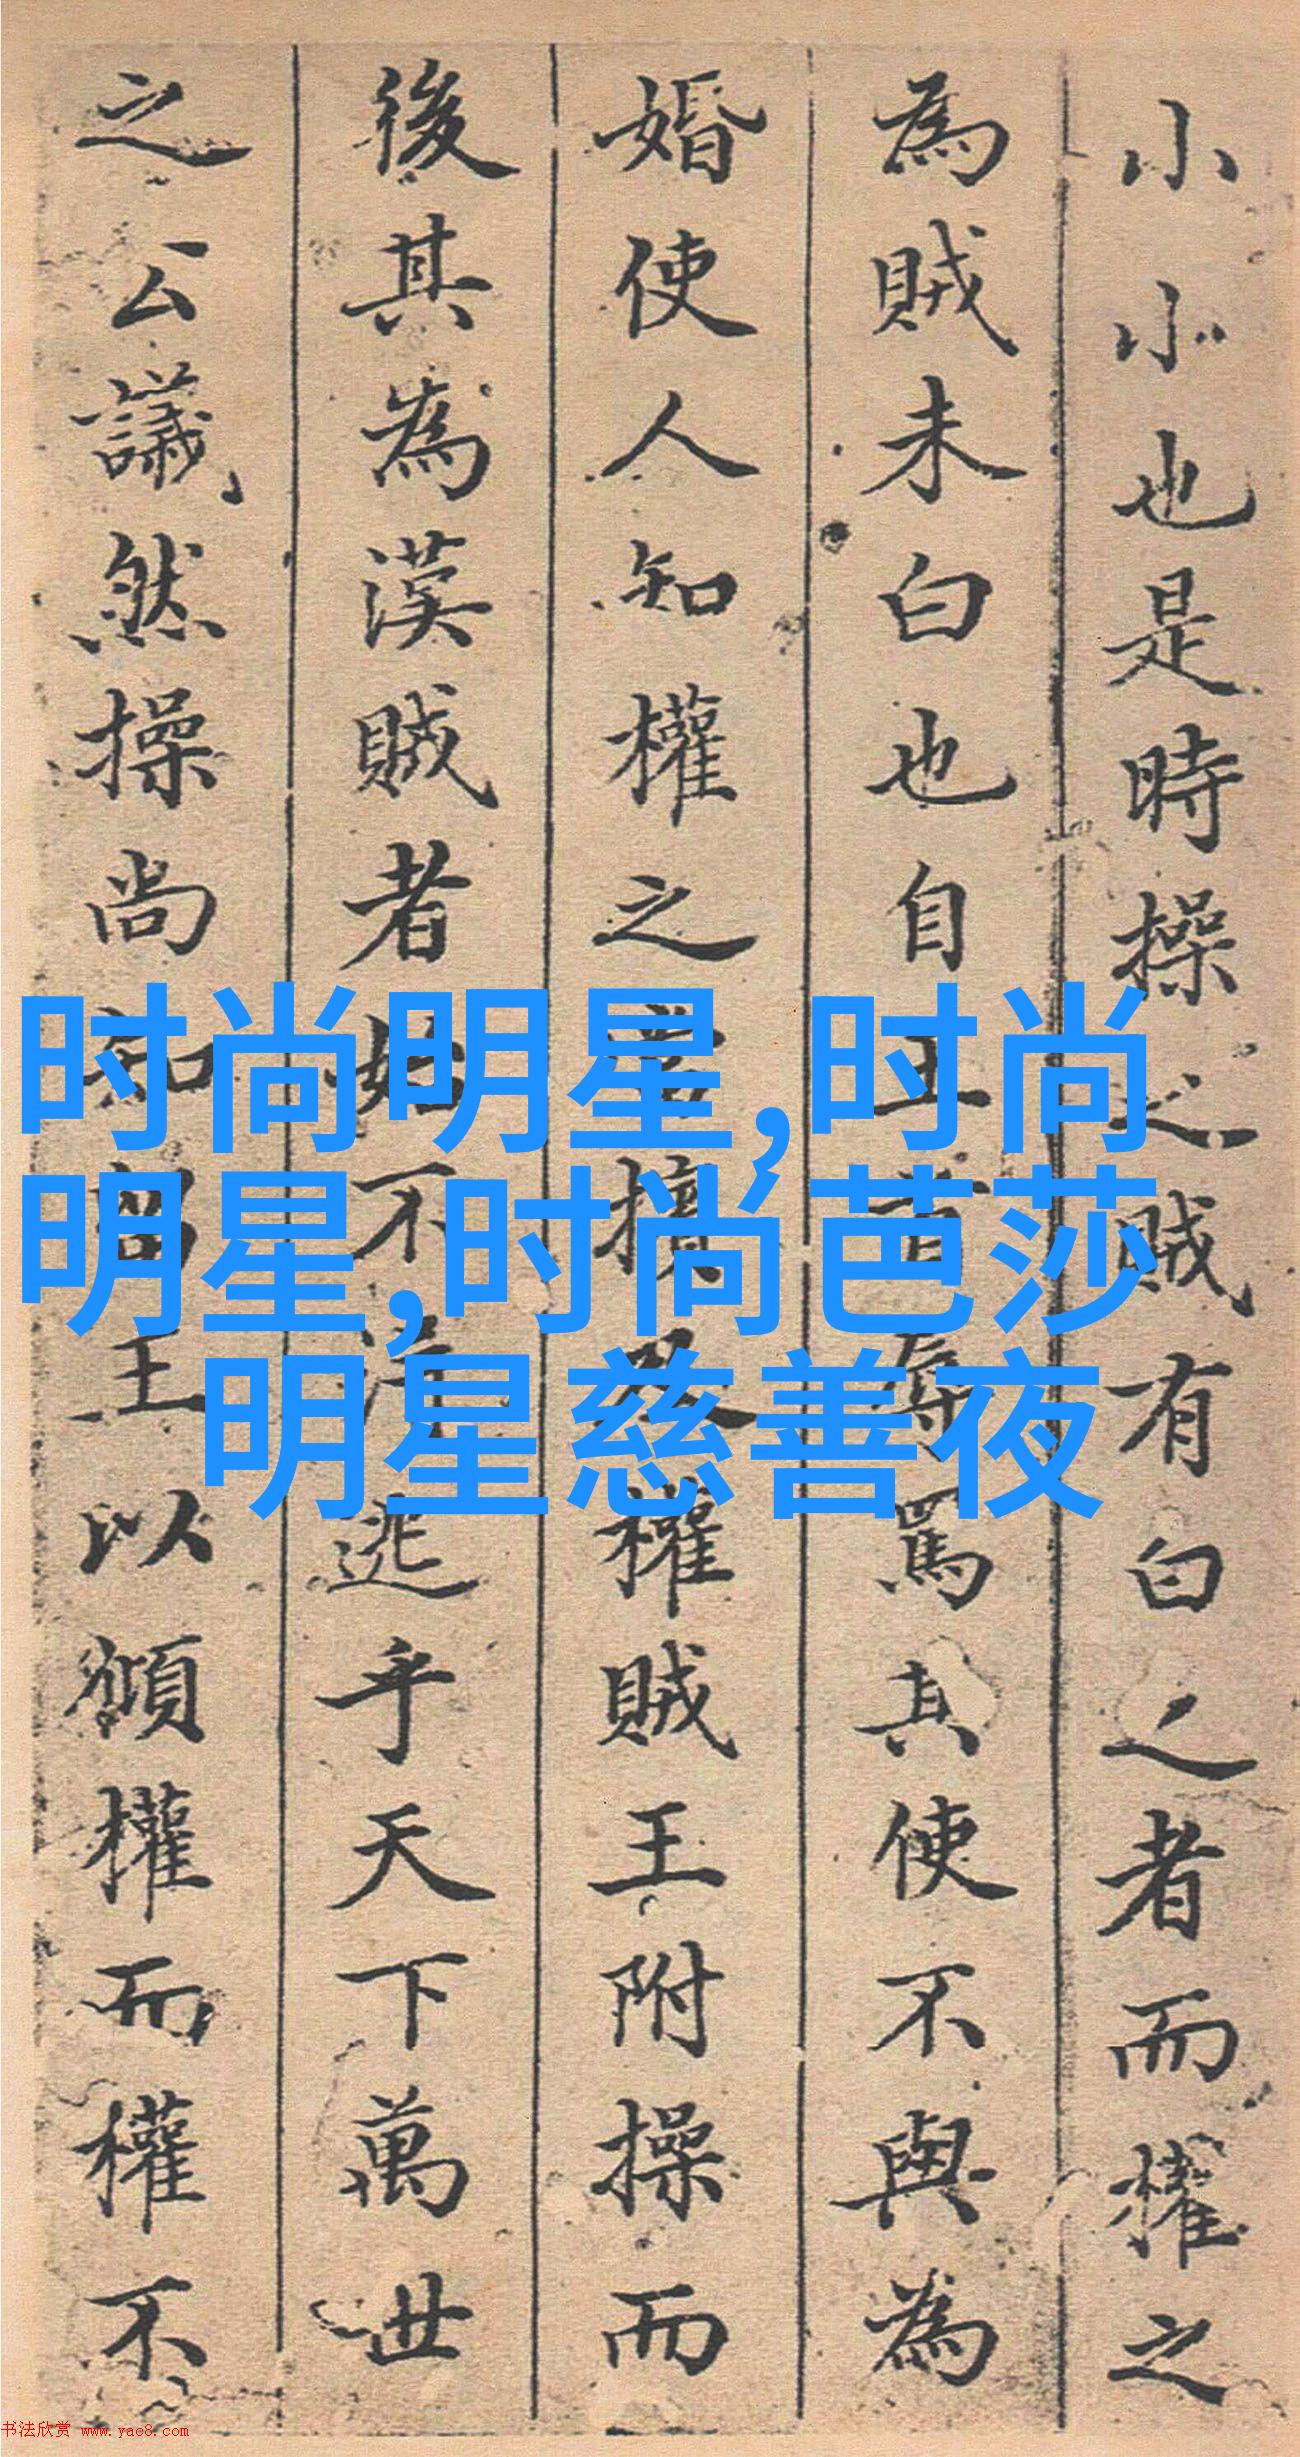 小小也是時操之賊有白之者而權之
為賊未白也自罵其使不與為
婚使人知權之權賊王附操而
後其為漢賊者始不逃乎天下萬世
之公議然操尚知王以權而權不
时尚明星,时尚
明星,时尚芭莎
明星慈善夜
书法欣赏 www.yac8.com